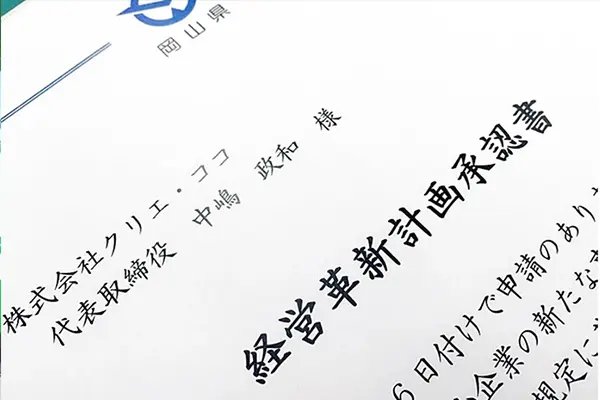 岡山県
株式会社クリエ・ココ
代表取締役 中嶋 政和 様
経営革新計画承認書
6日付けで申請のあり
企業の新たな
規定に